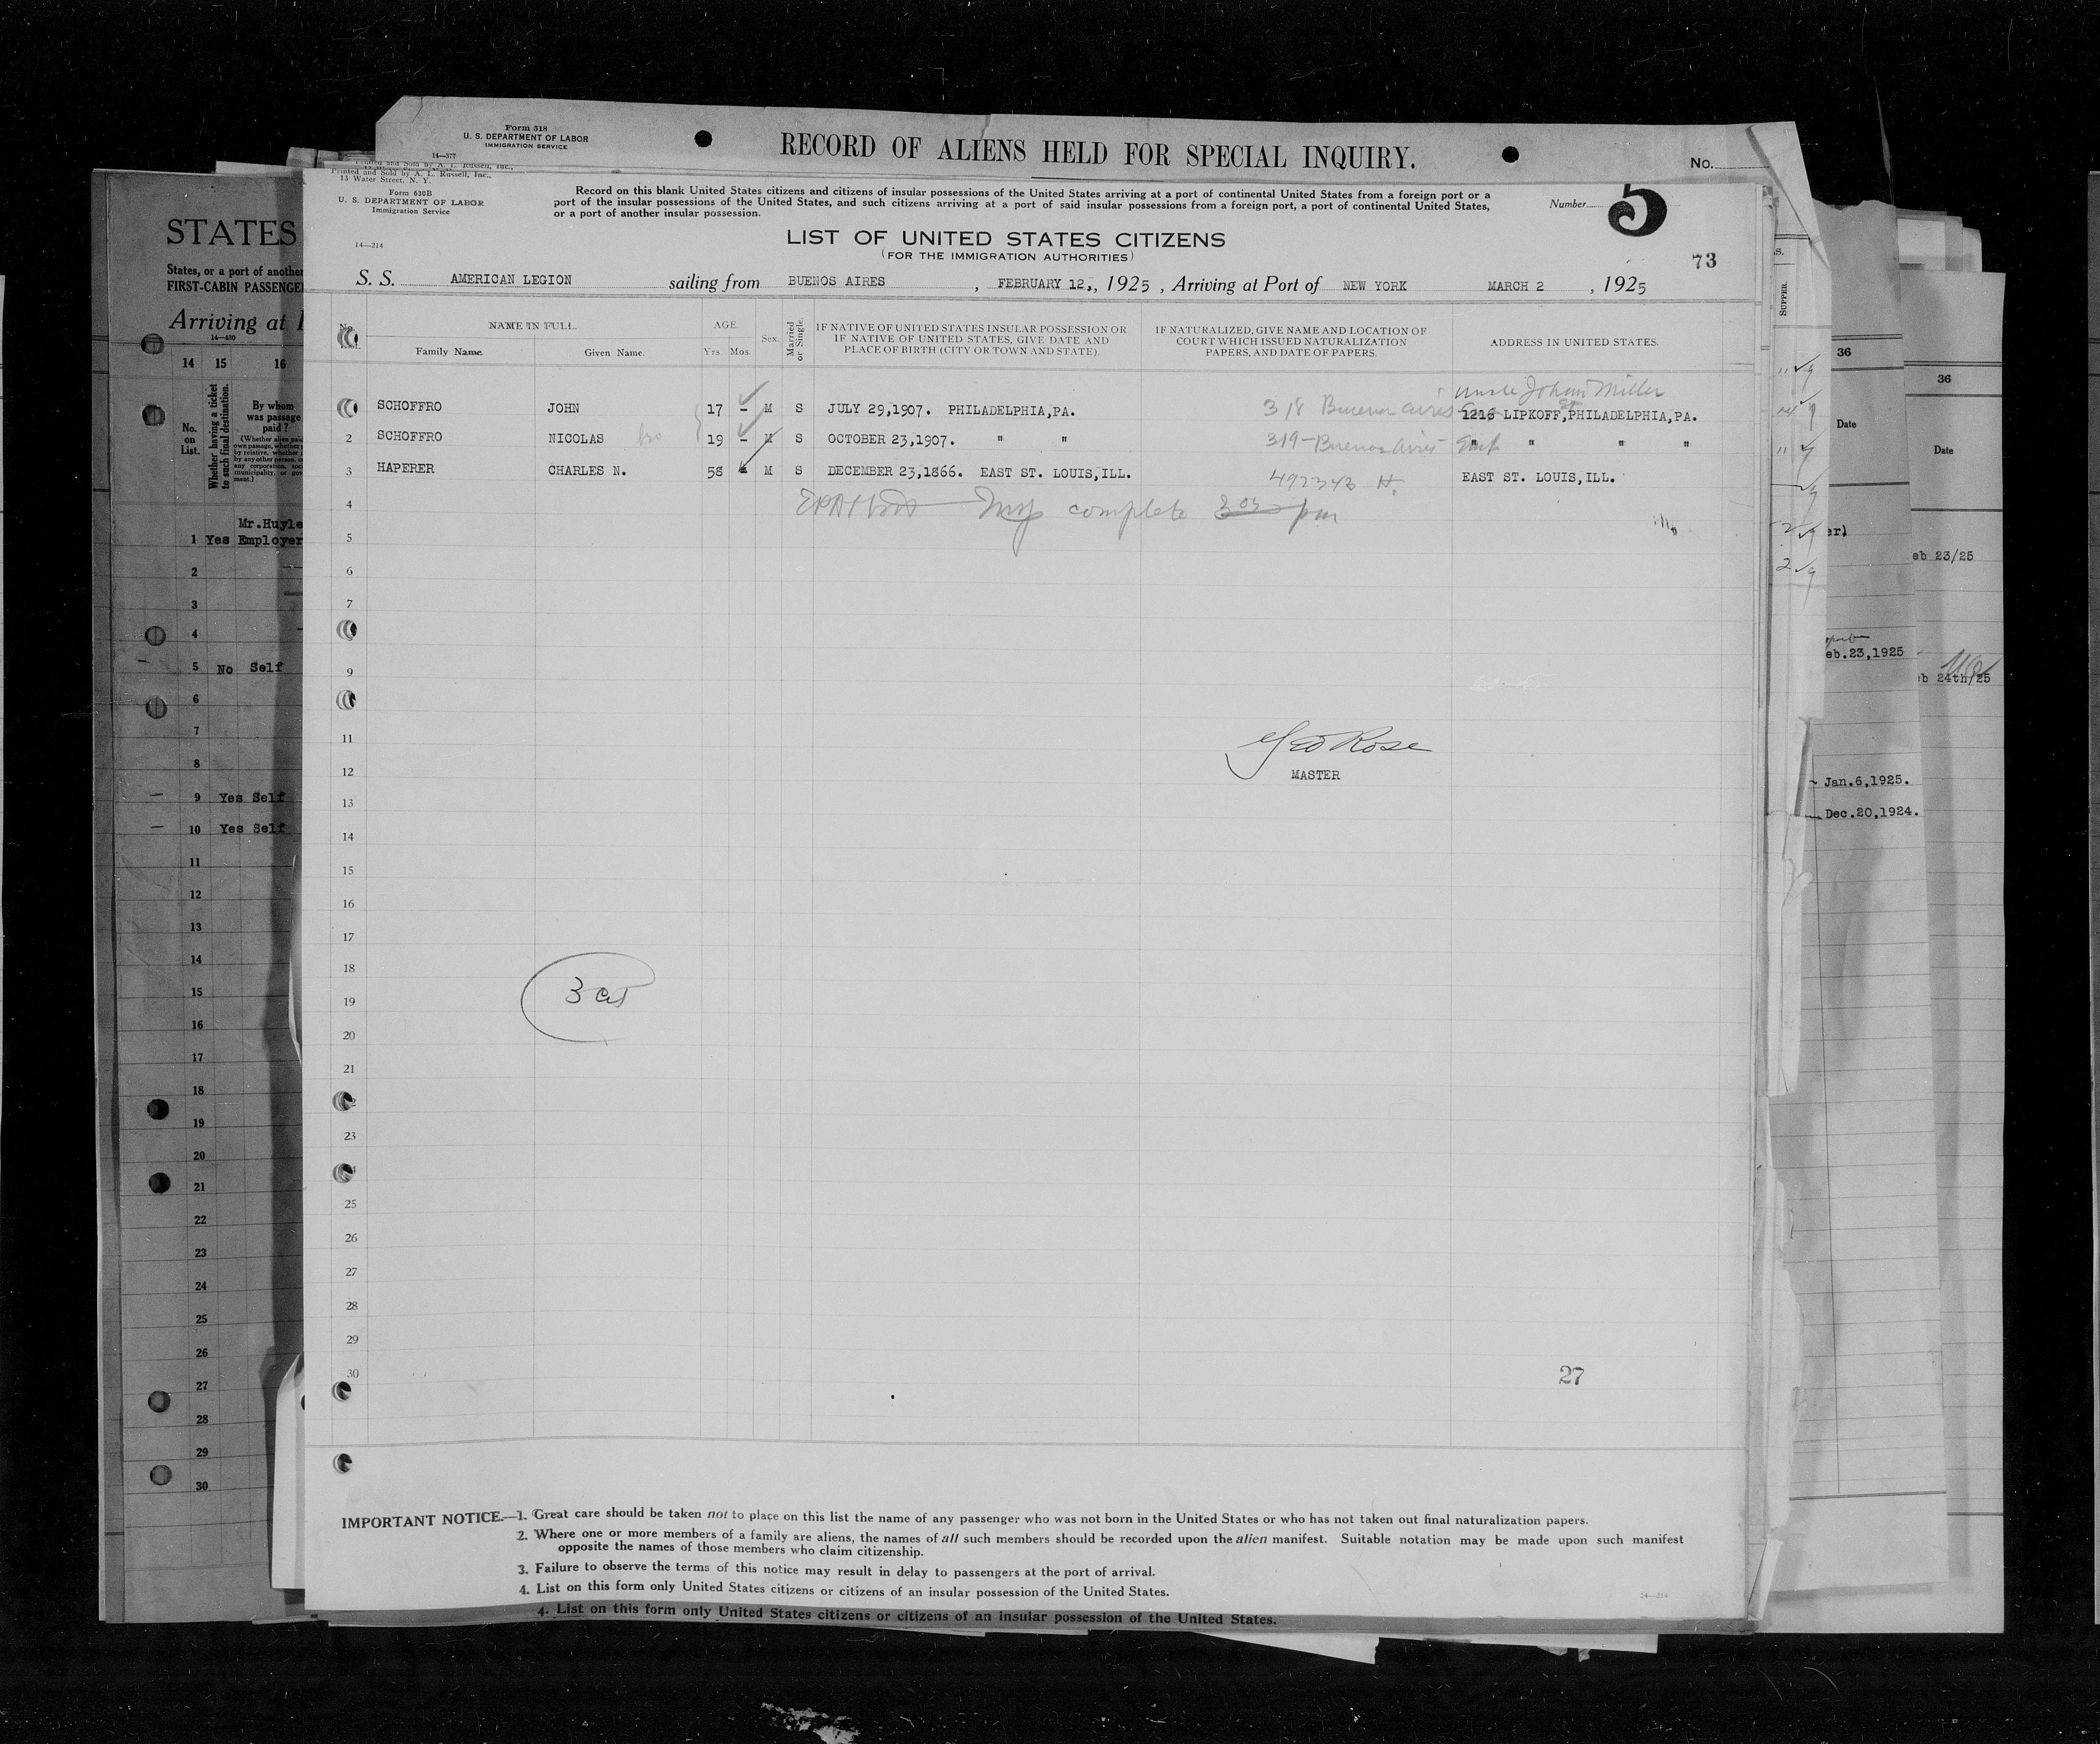 Form 518
U. S. DEPARTMENT OF LABOR
IMMIGRATION SERVICE
14—377
RECORD OF ALIENS HELD FOR SPECIAL INQUIRY.
No.
Printed and Sold by A. L. Russell, Inc.,
Printed and Sold by A. L. Russell, Inc.,
13 Water Street, N. Y.
Form 630B
U. S. DEPARTMENT OF LABOR
Immigration Service
14—214
Record on this blank United States citizens and citizens of insular possessions of the United States arriving at a port of continental United States from a foreign port or a
port of the insular possessions of the United States, and such citizens arriving at a port of said insular possessions from a foreign port, a port of continental United States,
or a port of another insular possession.
Number 5
LIST OF UNITED STATES CITIZENS
(FOR THE IMMIGRATION AUTHORITIES)
73
S. S. AMERICAN LEGION sailing from BUENOS AIRES, FEBRUARY 12,, 1925, Arriving at Port of NEW YORK MARCH 2, 1925
NAME IN FULL. AGE.
Family Name. Given Name. Yrs. Mos. Sex. Married or Single.
IF NATIVE OF UNITED STATES INSULAR POSSESSION OR
IF NATIVE OF UNITED STATES, GIVE DATE AND
PLACE OF BIRTH (CITY OR TOWN AND STATE).
IF NATURALIZED, GIVE NAME AND LOCATION OF
COURT WHICH ISSUED NATURALIZATION
PAPERS, AND DATE OF PAPERS.
ADDRESS IN UNITED STATES.
uncle Johann Miller
SCHOFFRO JOHN 17 - M S JULY 29,1907. PHILADELPHIA,PA. 318 Buenos Aires 1216 LIPKOFF,PHILADELPHIA,PA.
2 SCHOFFRO NICOLAS bro 19 - M S OCTOBER 23,1907. " " 319-Buenos Aires " " " "
3 HAPERER CHARLES N. 58 M S DECEMBER 23,1866. EAST ST. LOUIS,ILL. 492343 EAST ST. LOUIS,ILL.
4 Insp complete 3 05 pm
5
6
7
9
11
Geo Rose
12 MASTER
13
14
15
16
17
18
19
20
21
23
25
26
27
28
29
30
27
IMPORTANT NOTICE.—1. Great care should be taken not to place on this list the name of any passenger who was not born in the United States or who has not taken out final naturalization papers.
2. Where one or more members of a family are aliens, the names of all such members should be recorded upon the alien manifest. Suitable notation may be made upon such manifest
opposite the names of those members who claim citizenship.
3. Failure to observe the terms of this notice may result in delay to passengers at the port of arrival.
4. List on this form only United States citizens or citizens of an insular possession of the United States.
14—214
4. List on this form only United States citizens or citizens of an insular possession of the United States.
STATES
States, or a port of another
FIRST-CABIN PASSENGE
Arriving at
14—430
14 15 16
No.
on
List.
Whether having a ticket
to such final destination.
By whom
was passage
paid?
Mr.Huyle
1 Yes Employer
2
3
4
5 No Self
6
7
8
9 Yes Self
10 Yes Self
11
12
13
14
15
16
17
18
19
20
21
22
23
24
25
26
27
28
29
30
SUPPER.
36
Date
er)
eb.23,1925
Jan.6,1925.
Dec.20,1924.
36
Date
eb 23/25
b 24th/25